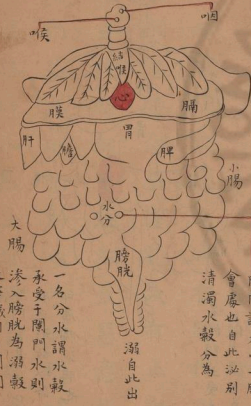 咽
喉
結
喉
心
膜
膈
肝
膽
胃
脾
小腸
水
分
大腸
膀胱
溺自此出
會處也自此泌别
清濁水穀分為
一名分水謂水穀
承受于闌門水則
滲入膀胱為溺穀